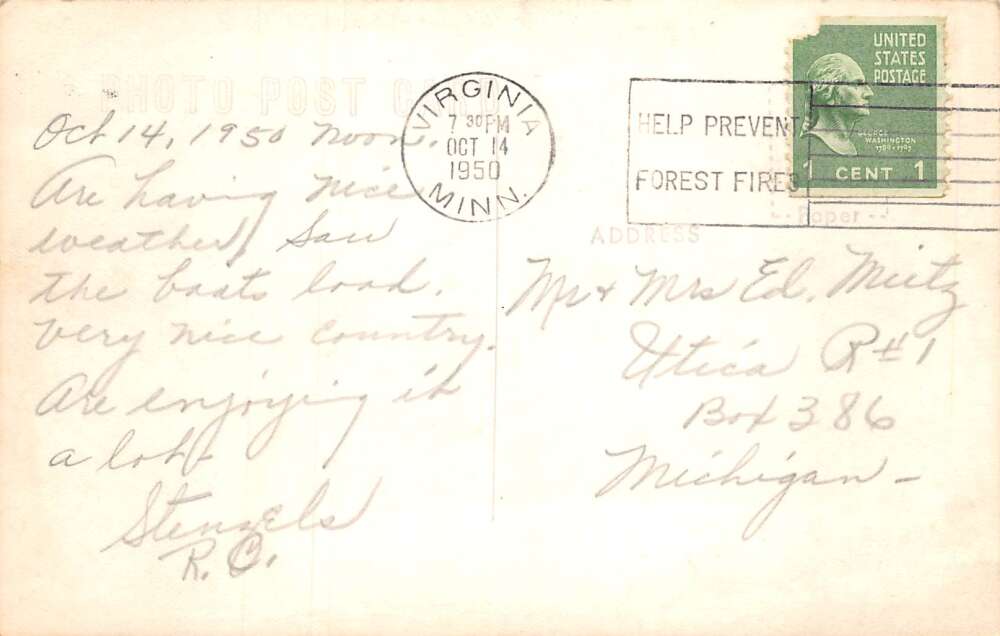 PHOTO POST CARD
Oct 14, 1950 Noon.
Are having nice
weather, Saw
the boats load.
Very nice country.
Are enjoying it
a lot.
Stenzels
R. C.
VIRGINIA
7 30 PM
OCT 14
1950
MINN.
HELP PREVENT
FOREST FIRES
UNITED
STATES
POSTAGE
GEORGE
WASHINGTON
1789-1797
1 CENT 1
Paper
ADDRESS
Mr & Mrs Ed. Mietz
Utica R#1
Box 386
Michigan -